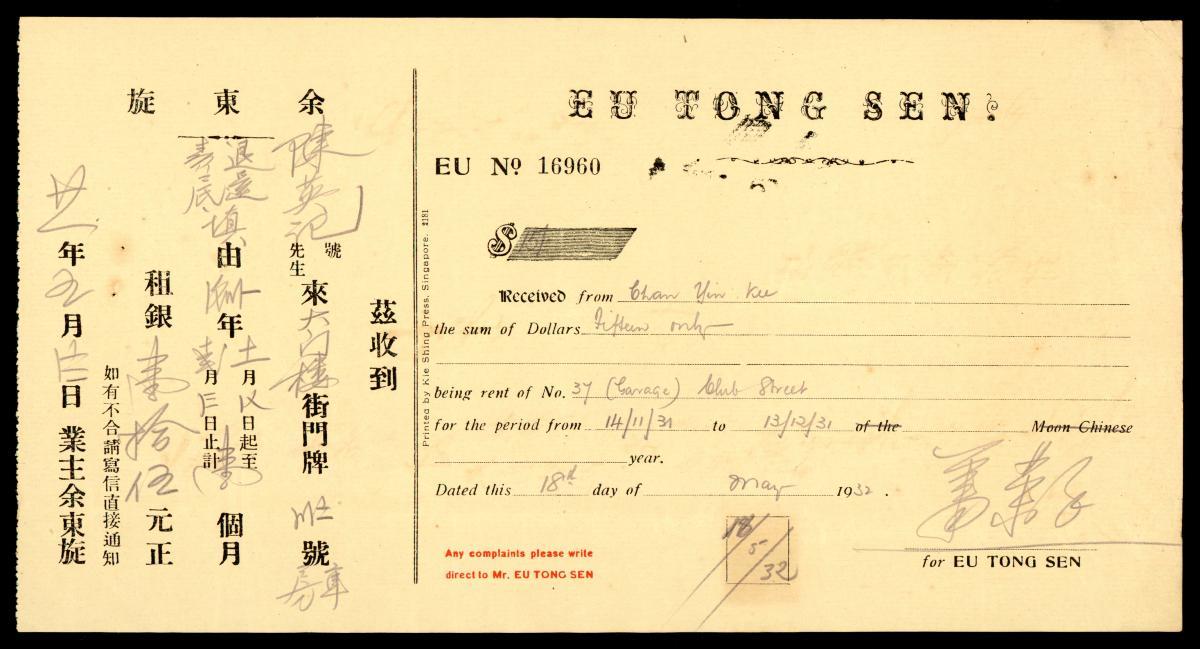 余東旋
茲收到
陳英記
號
先生
來大門樓街門牌
號
退還
由
年
月
日起至
月
日止計
個月
租銀壹拾伍元正
如有不合請寫信直接通知
年五月
日業主余東旋
EU TONG SEN.
EU Nº 16960
$ 15
Received from Chan Yin Kee
the sum of Dollars Fifteen only
being rent of No. 37 (Garage) Club Street
for the period from 14/11/31 to 13/12/31 of the Moon Chinese
year.
Dated this 18th day of May 1932.
18/5/32
Any complaints please write
direct to Mr. EU TONG SEN
for EU TONG SEN
Printed by Kie Shing Press, Singapore. 2181